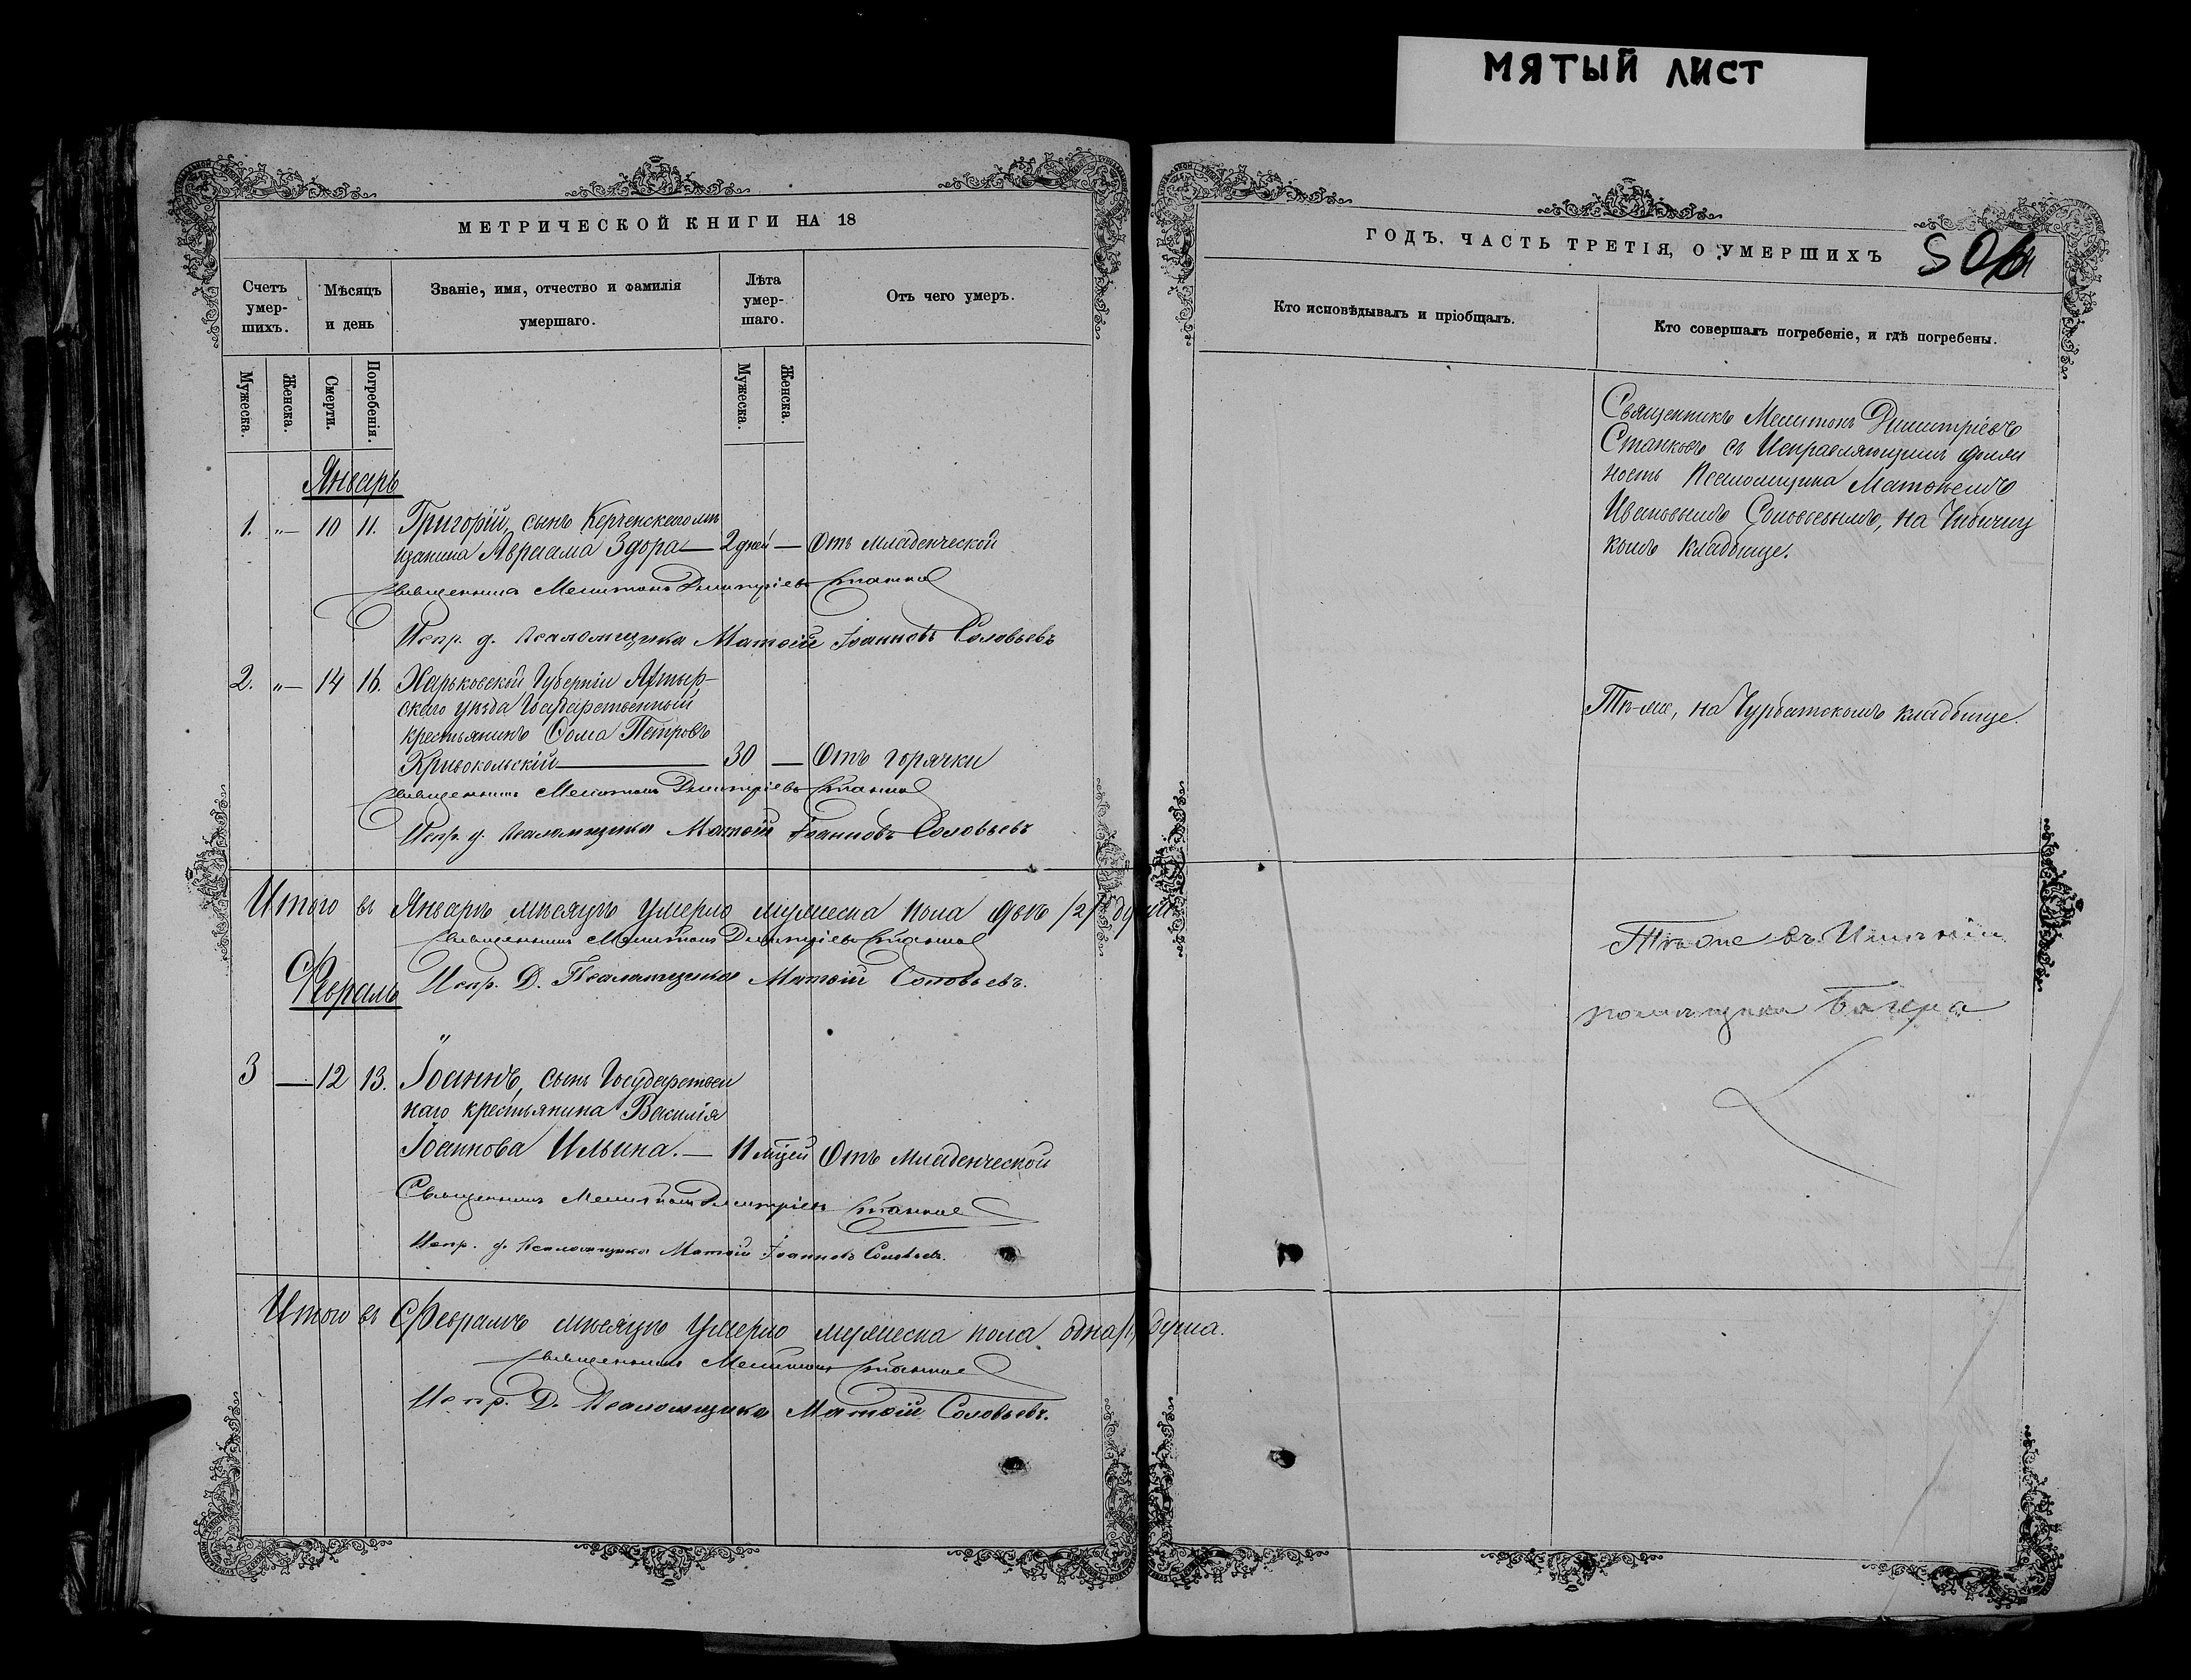 МЯТЫЙ ЛИСТ
МЕТРИЧЕСКОЙ КНИГИ НА 18
Счетъ умер-шихъ.
Мѣсяцъ и день
Званіе, имя, отчество и фамилія умершаго.
Лѣта умер-шаго.
Отъ чего умеръ.
Мужеска.
Женска.
Смерти.
Погребенія.
Мужеска.
Женска.
Январь
1. „— 10 11. Григорій, сынъ Керченскаго мѣ
щанина Авраама Здора — 2 дней — Отъ младенческой
Священникъ Мелитонъ Димитріевъ Станковъ
Испр. д. Псаломщика Матѳій Іоанновъ Соловьевъ
2. „— 14 16. Харьковской Губерніи Ахтыр-
скаго уѣзда Государственный
крестьянинъ Ѳома Петровъ
Кривокольскій — 30 — Отъ горячки
Священникъ Мелитонъ Димитріевъ Станковъ
Испр. д. Псаломщика Матѳій Іоанновъ Соловьевъ
Итого въ Январѣ мѣсяцѣ умерло мужеска пола двѣ /2/ души
Священникъ Мелитонъ Димитріевъ Станковъ
Февраль
Испр. Д. Псаломщика Матѳій Соловьевъ.
3 — 12 13. Іоаннъ, сынъ Государствен
наго крестьянина Василія
Іоаннова Ильина. — 11 мѣцей Отъ младенческой
Священникъ Мелитонъ Димитріевъ Станковъ
Испр. д. Псаломщика Матѳій Іоанновъ Соловьевъ.
Итого въ Февралѣ мѣсяцѣ умерло мужеска пола одна /1/ душа.
Священникъ Мелитонъ Станковъ
Испр. Д. Псаломщика Матѳій Соловьевъ.
ГОДЪ. ЧАСТЬ ТРЕТІЯ, О УМЕРШИХЪ
Кто исповѣдывалъ и пріобщалъ.
Кто совершалъ погребеніе, и гдѣ погребены.
Священникъ Мелитонъ Димитріевъ
Станковъ съ Исправляющимъ долж
ность Псаломщика Матѳеемъ
Ивановымъ Соловьевымъ, на
комъ кладбище.
Тѣ-же, на Чурбатскомъ кладбище.
Тѣ же въ Имѣніи
помѣщика Багера